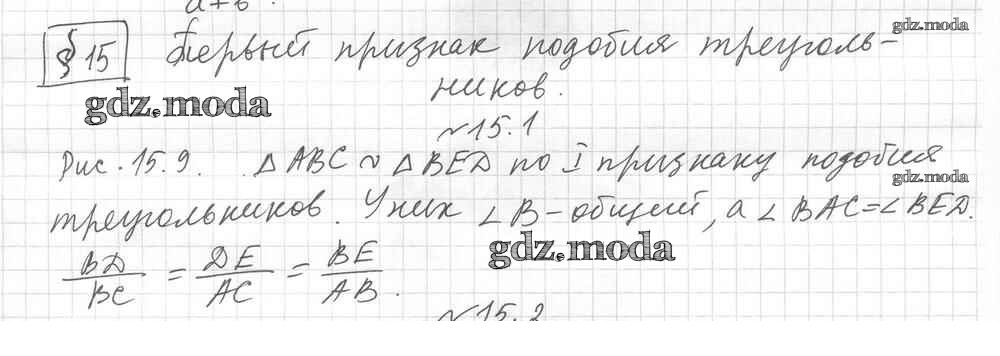 a+b.
§ 15 Первый признак подобия треуголь-
ников.
gdz.moda
gdz.moda
№15.1
Рис. 15.9. △ABC ~ △BED по I признаку подобия
gdz.moda
треугольников. У них ∠B - общий, а ∠BAC = ∠BED.
BD/BC = DE/AC = BE/AB.
gdz.moda
№15.2